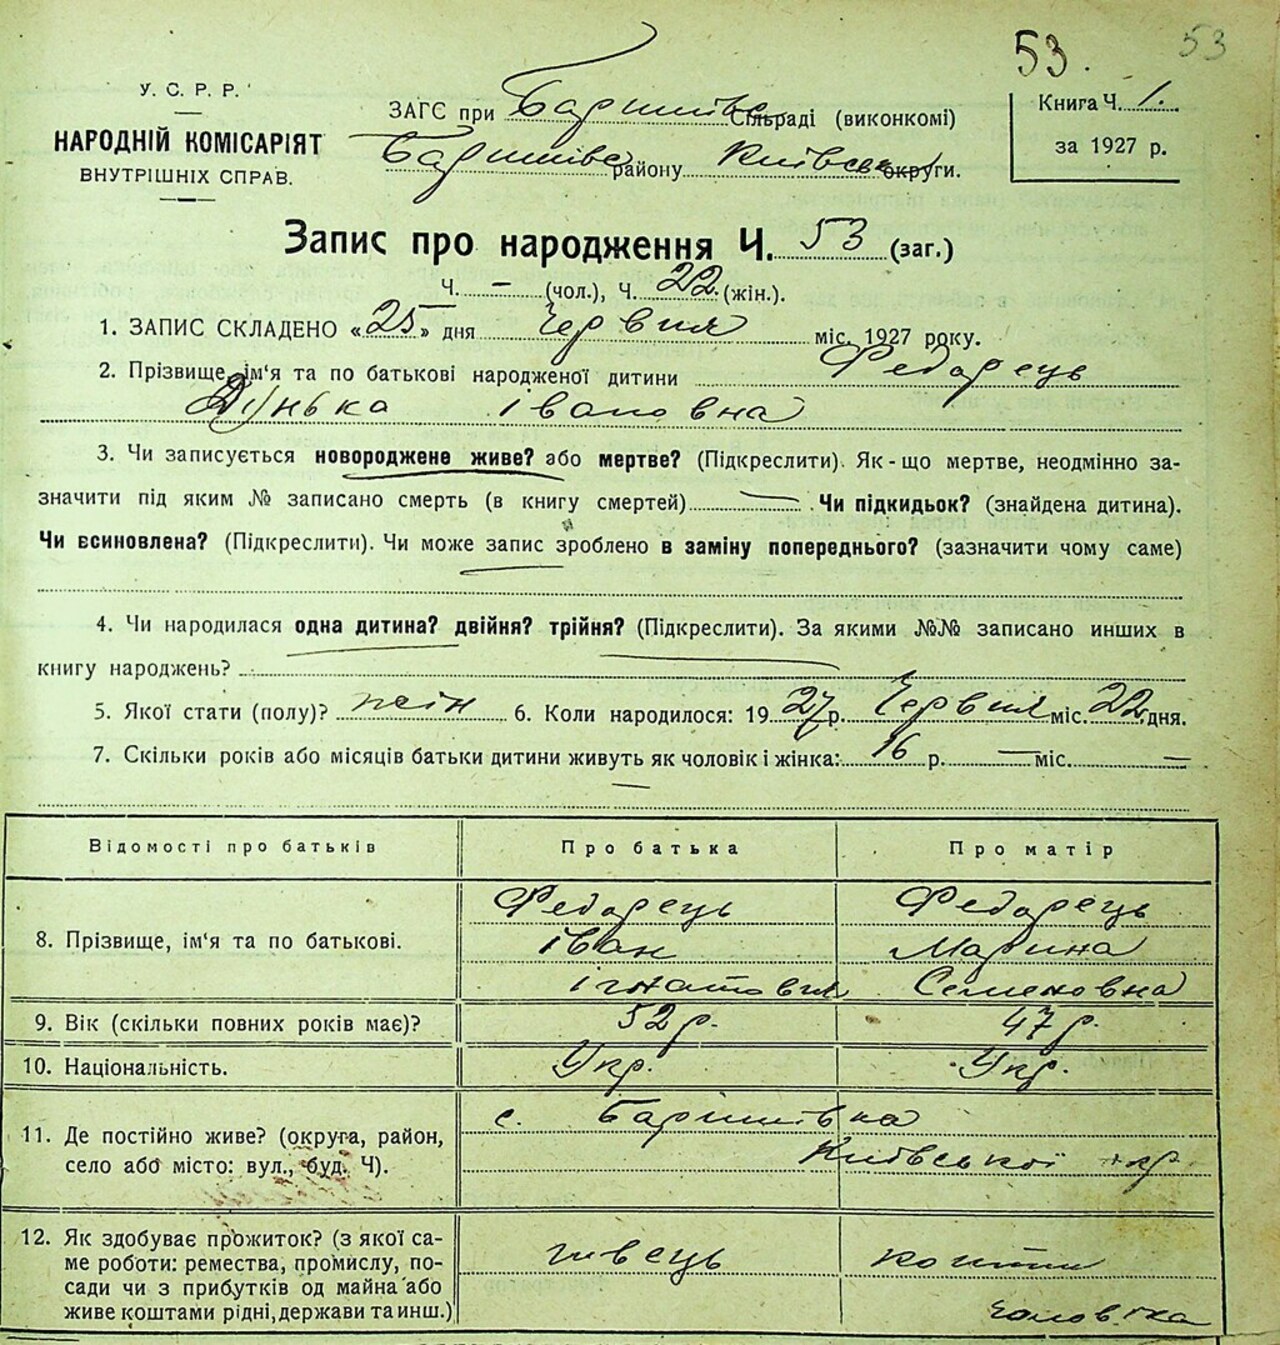 53. 53
У. С. Р. Р.
НАРОДНІЙ КОМІСАРІЯТ
ВНУТРІШНІХ СПРАВ.
ЗАГС при Баришівс Сільраді (виконкомі)
Баришівс району Київськ округи.
Книга Ч. 1.
за 1927 р.
Запис про народження Ч. 53 (заг.)
Ч. — (чол.), Ч. 22 (жін.).
1. ЗАПИС СКЛАДЕНО «25» дня Червня міс. 1927 року.
2. Прізвище, ім'я та по батькові народженої дитини Федорець
Дунька Івановна
3. Чи записується новороджене живе? або мертве? (Підкреслити). Як-що мертве, неодмінно за-
значити під яким № записано смерть (в книгу смертей) — . Чи підкидьок? (знайдена дитина).
Чи всиновлена? (Підкреслити). Чи може запис зроблено в заміну попереднього? (зазначити чому саме)
4. Чи народилася одна дитина? двійня? трійня? (Підкреслити). За якими №№ записано инших в
книгу народжень? —
5. Якої стати (полу)? жін 6. Коли народилося: 1927 р. Червня міс. 22 дня.
7. Скільки років або місяців батьки дитини живуть як чоловік і жінка: 16 р. — міс. —
Відомості про батьків Про батька Про матір
8. Прізвище, ім'я та по батькові.
Федорець Федорець
Іван Марина
Ігнатович Семеновна
9. Вік (скільки повних років має)? 52 р. 47 р.
10. Національність. Укр. Укр.
11. Де постійно живе? (округа, район,
село або місто: вул., буд. Ч).
с. Баришівка
Київської окр
12. Як здобуває прожиток? (з якої са-
ме роботи: ремества, промислу, по-
сади чи з прибутків од майна або
живе коштами рідні, держави та инш.)
швець кошти
чоловіка